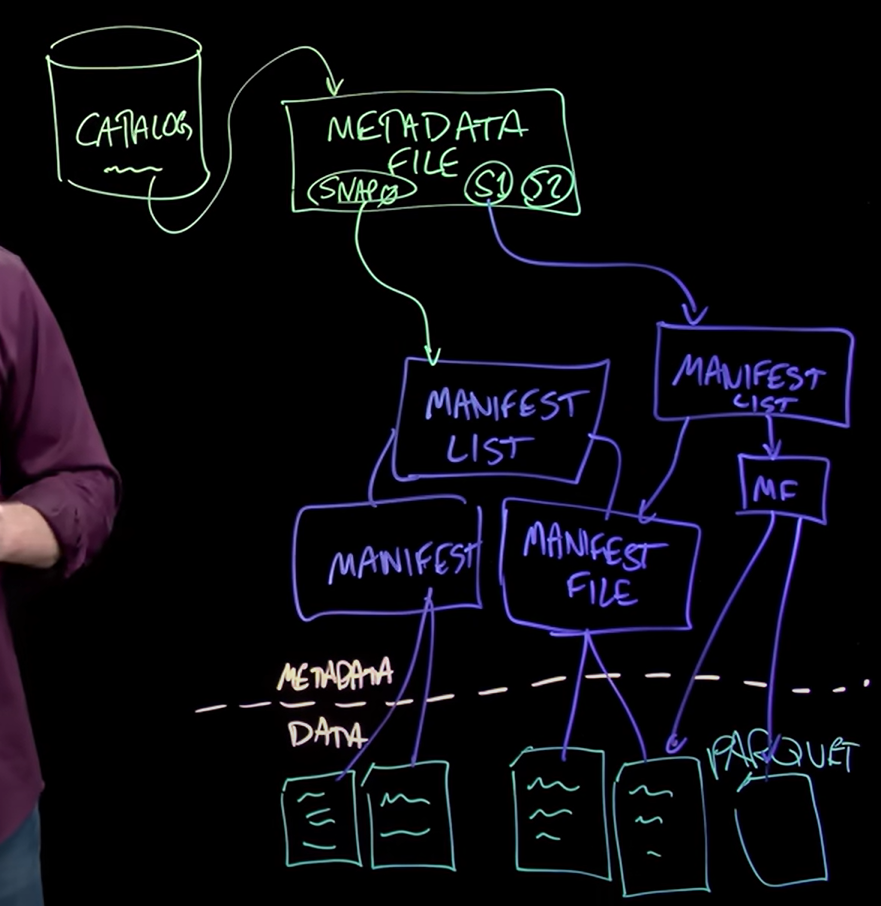 CATALOG
METADATA
FILE
SNAP0 S1 S2
MANIFEST
LIST
MANIFEST
LIST
MF
MANIFEST
MANIFEST
FILE
METADATA
DATA
PARQUET